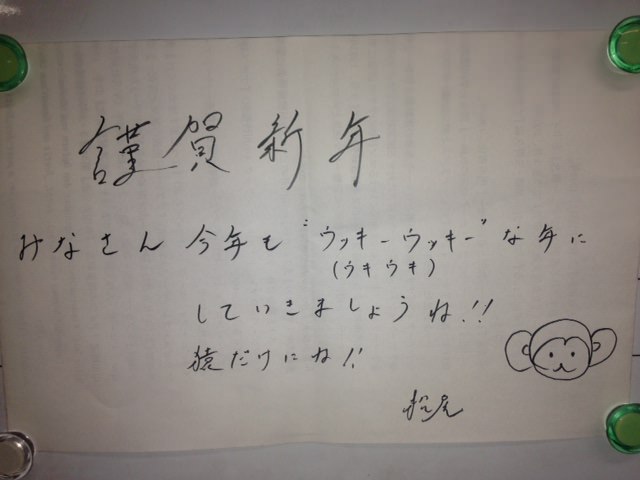 謹賀新年
みなさん 今年も "ウッキーウッキー" な年に
(ウキウキ)
していきましょうね!!
猿だけにね!!
松尾